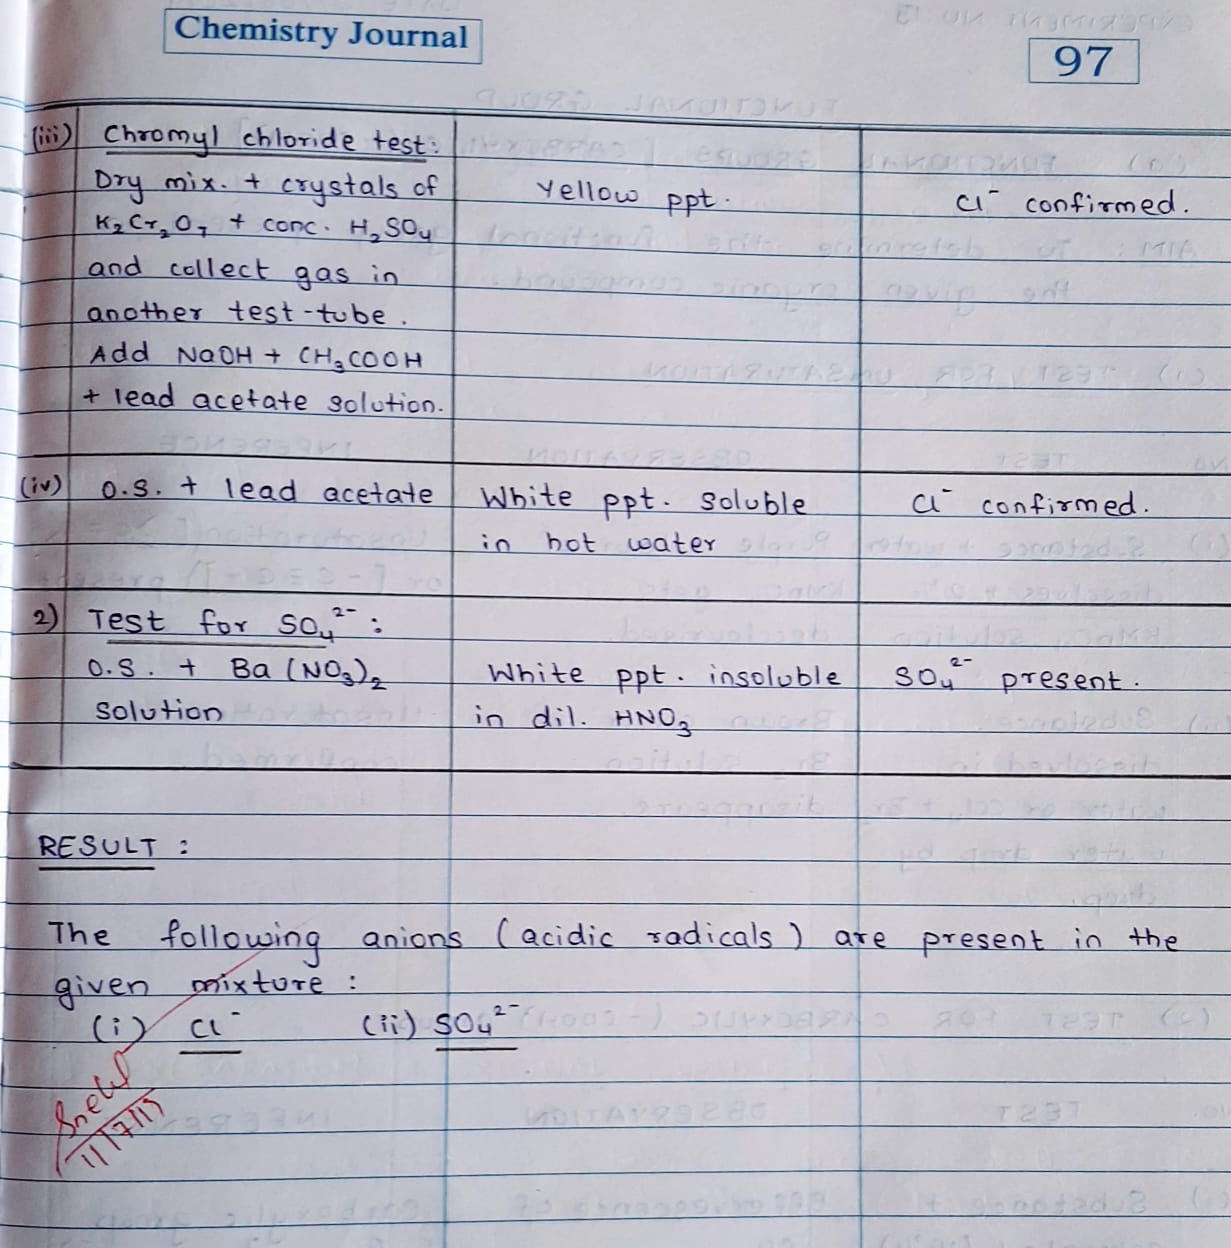 Chemistry Journal
97
(iii) Chromyl chloride test:
Dry mix. + crystals of Yellow ppt. Cl⁻ confirmed.
K₂Cr₂O₇ + conc. H₂SO₄
and collect gas in
another test-tube.
Add NaOH + CH₃COOH
+ lead acetate solution.
(iv) O.S. + lead acetate White ppt. soluble Cl⁻ confirmed.
in hot water
2) Test for SO₄²⁻ :
O.S. + Ba(NO₃)₂ White ppt. insoluble SO₄²⁻ present.
solution in dil. HNO₃
RESULT :
The following anions (acidic radicals) are present in the
given mixture :
(i) Cl⁻ (ii) SO₄²⁻